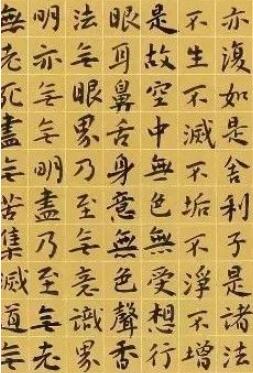 亦復如是舍利子是諸法
不生不滅不垢不淨不增
是故空中無色無受想行
眼耳鼻舌身意無色聲香
法无眼界乃至无意識界
明亦无无明盡乃至无老
無老死盡无苦集滅道无